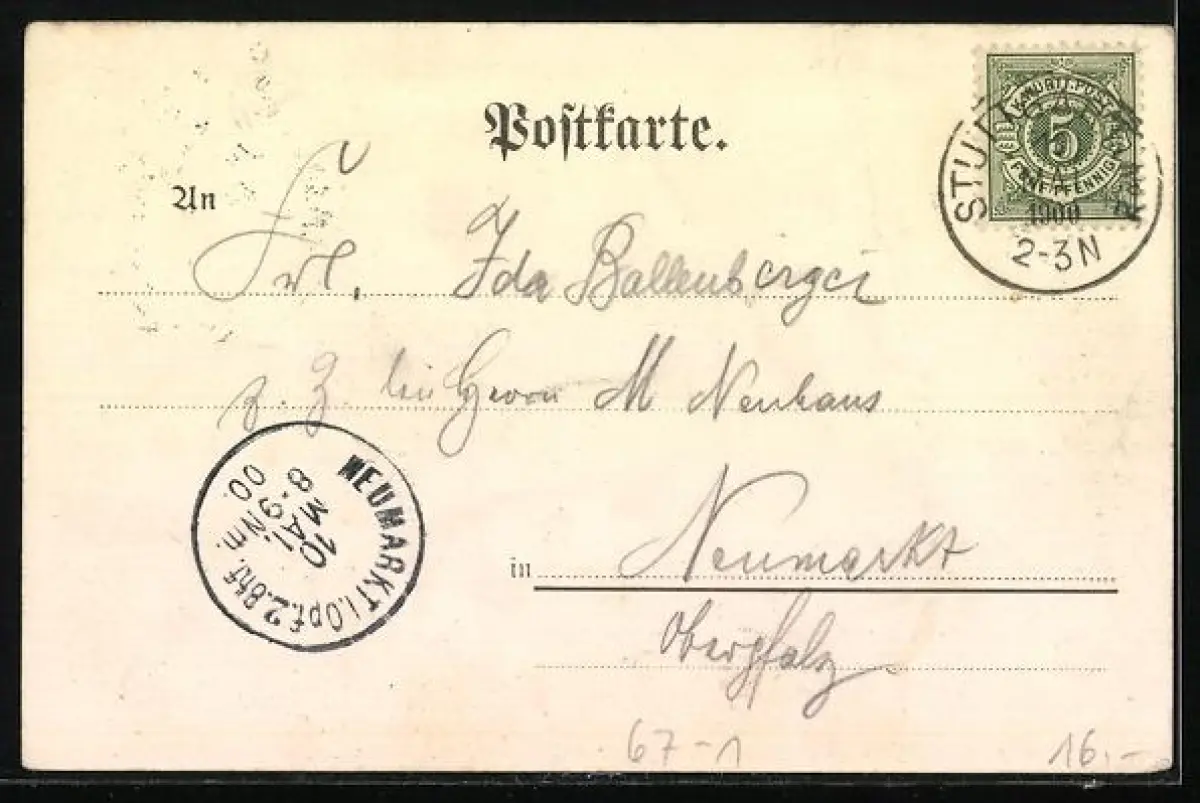 Postkarte.
K. WÜRTT. POST
5
FÜNF PFENNIG
STUTT
MAI
1900
2-3N
An Frl. Ida Ballenberger
z. Z. bei Herrn M Neuhaus
NEUMARKT i. Opf. 2. Bhf.
10
MAI.
8-9 NM.
00.
in Neumarkt
Oberpfalz
67-1
16.-